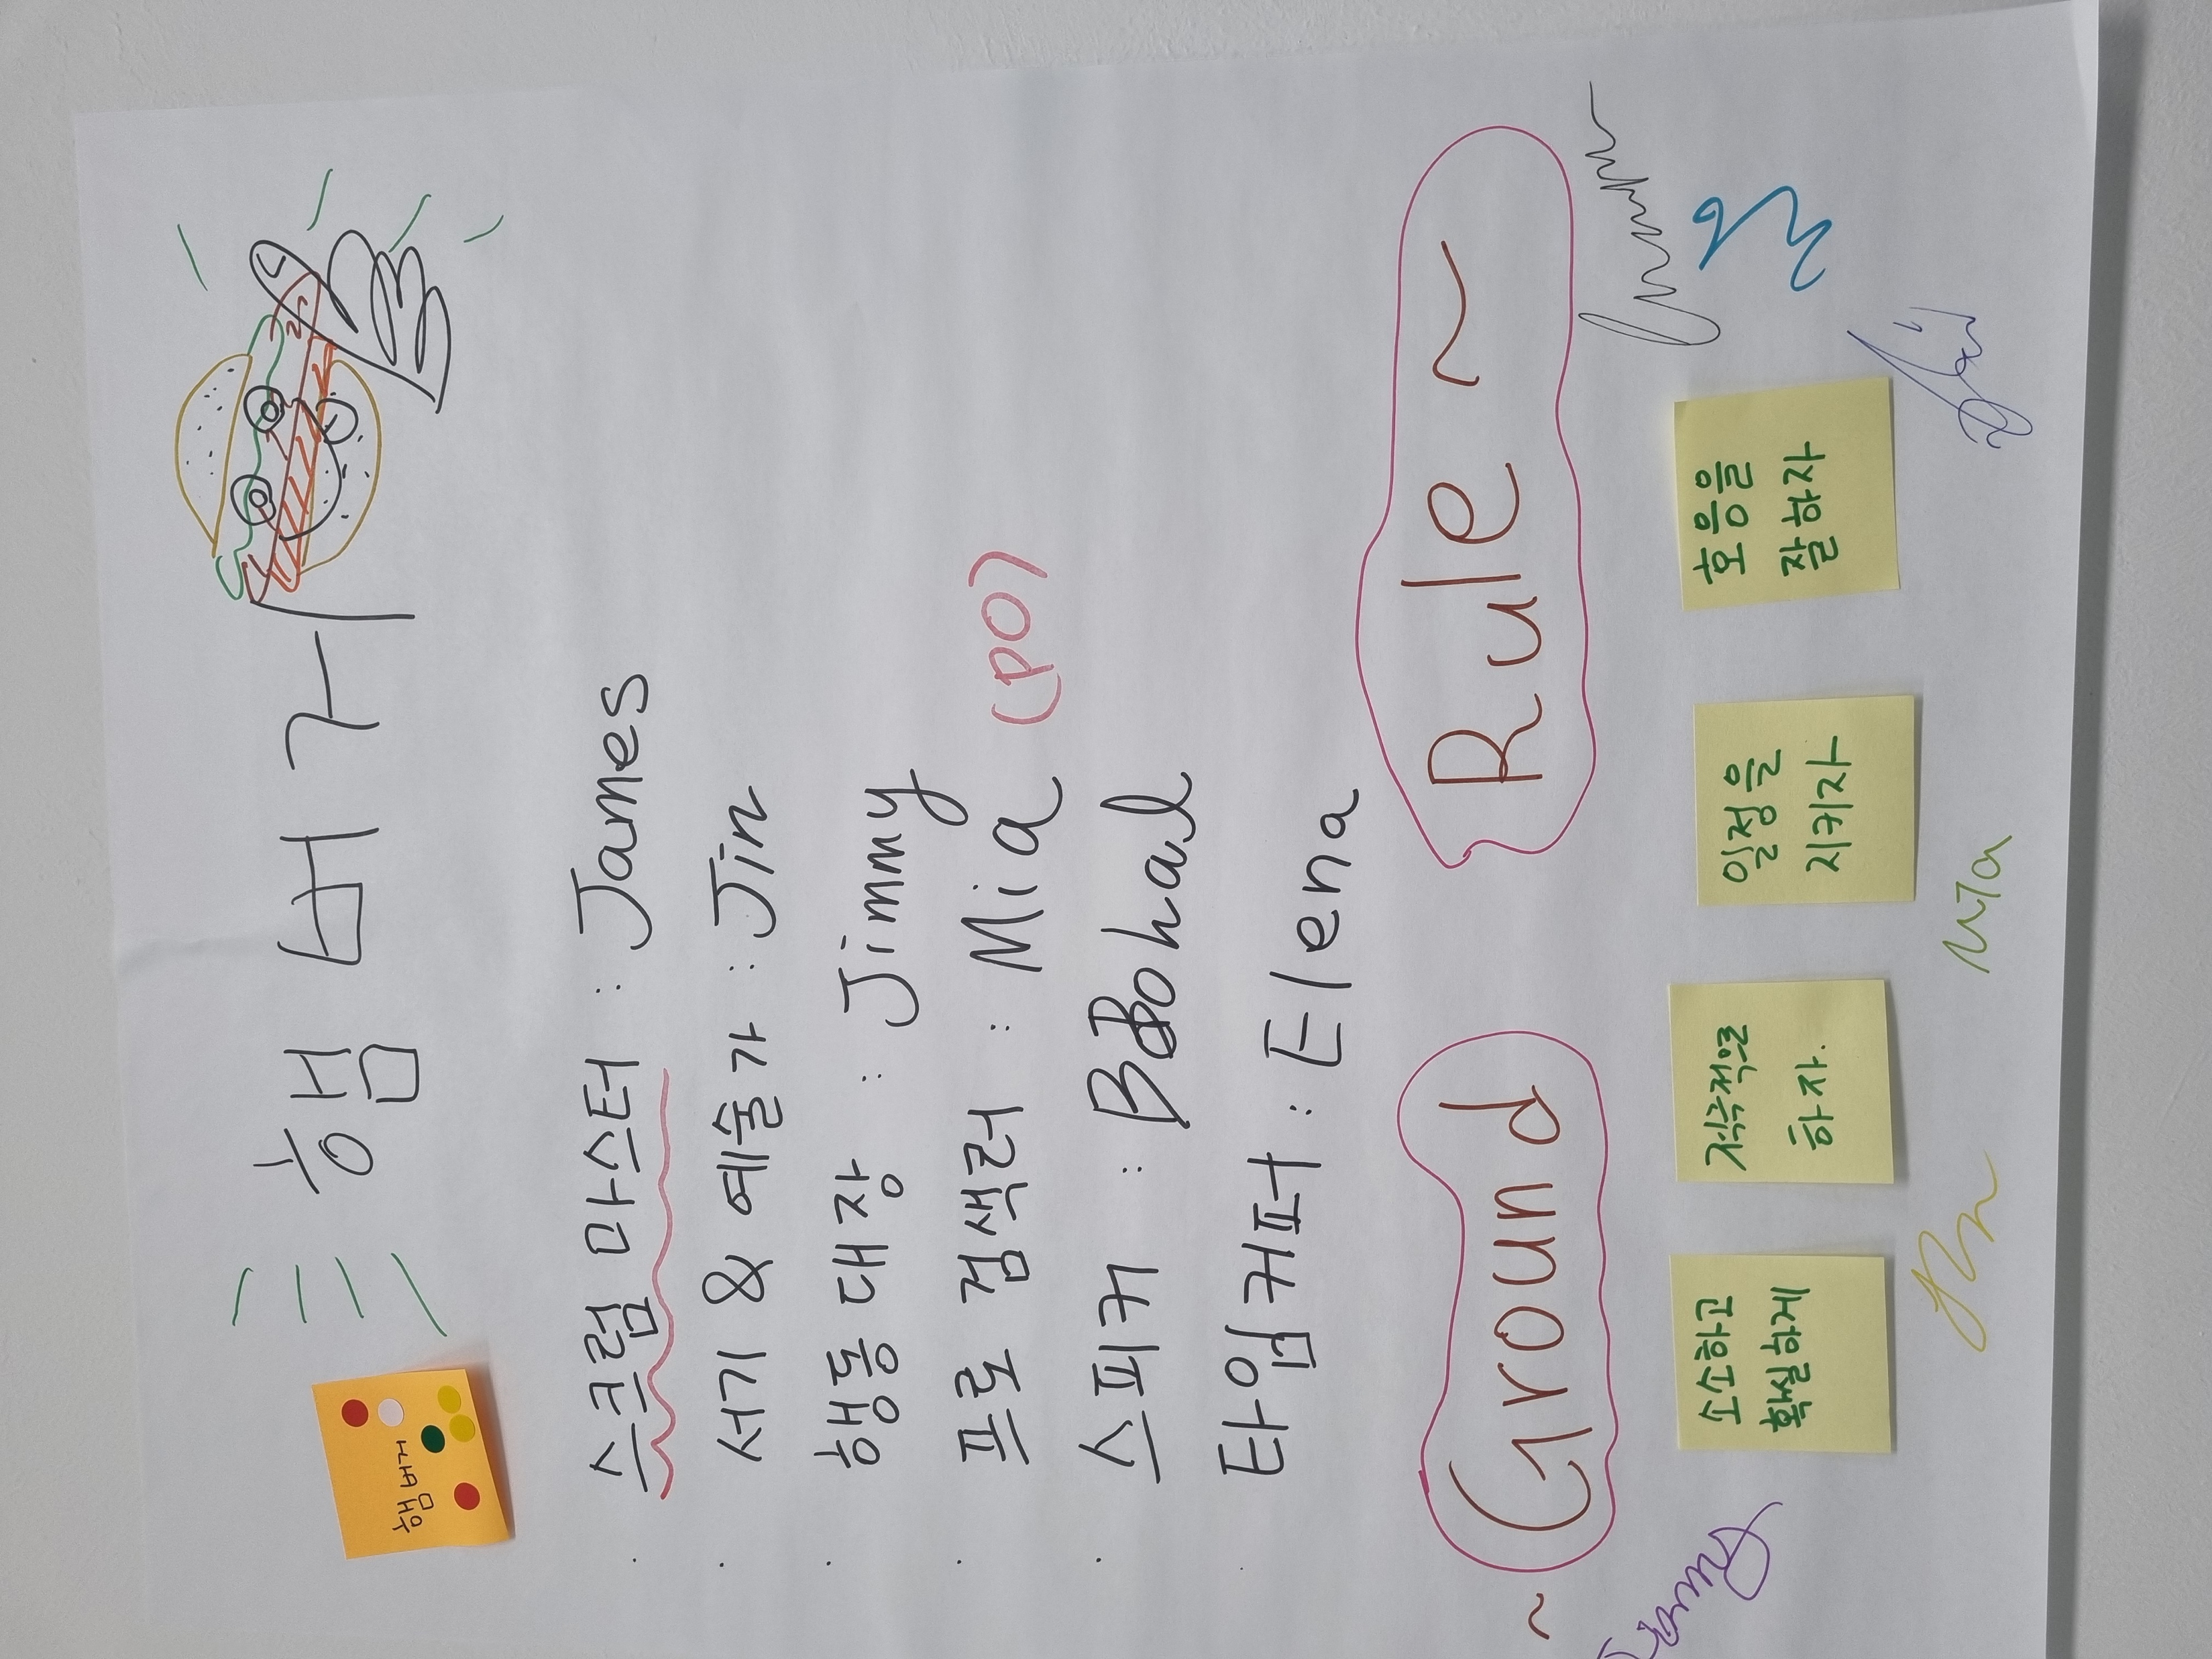 햄버거
햄버거
· 스크럼 마스터 : James
· 서기 & 예술가 : Jin
· 행동 대장 : Jimmy
· 프로 검색러 : Mia (PO)
· 스피커 : BBohal
· 타임키퍼 : Elena
~ Ground Rule ~
소소하고
확실하게
적극적으로
하자.
일정을
지키자
호응을
잘하자
Mia